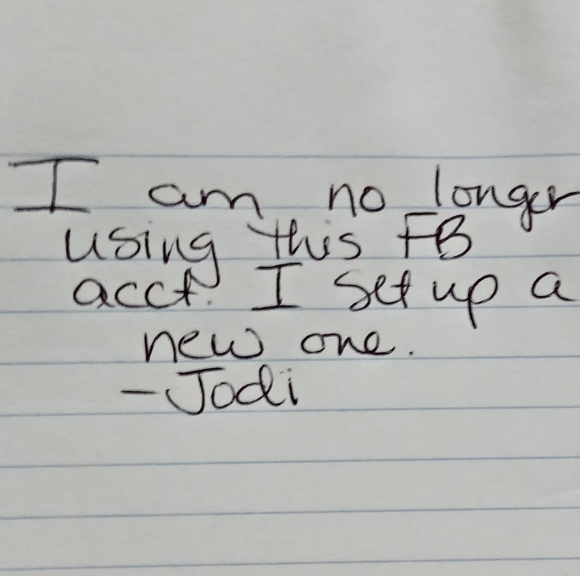 I am no longer
using this FB
acct. I set up a
new one.
-Jodi